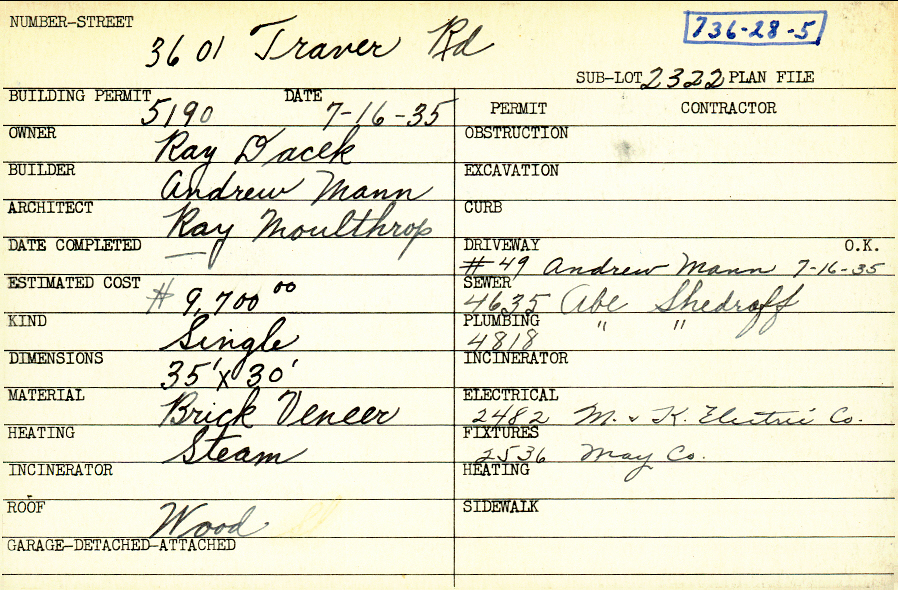 NUMBER-STREET
3601 Traver Rd
736-28-5
SUB-LOT 2322 PLAN FILE
BUILDING PERMIT 5190 DATE 7-16-35
OWNER Ray Dacek
BUILDER Andrew Mann
ARCHITECT Ray Moulthrop
DATE COMPLETED —
ESTIMATED COST # 9,700 00
KIND Single
DIMENSIONS 35' x 30'
MATERIAL Brick Veneer
HEATING Steam
INCINERATOR
ROOF Wood
GARAGE-DETACHED-ATTACHED
PERMIT CONTRACTOR
OBSTRUCTION
EXCAVATION
CURB
DRIVEWAY O.K.
#49 Andrew Mann 7-16-35
SEWER
4635 Abe Shedroff
PLUMBING " "
4818
INCINERATOR
ELECTRICAL
2482 M. & K. Electric Co.
FIXTURES
2536 May Co.
HEATING
SIDEWALK